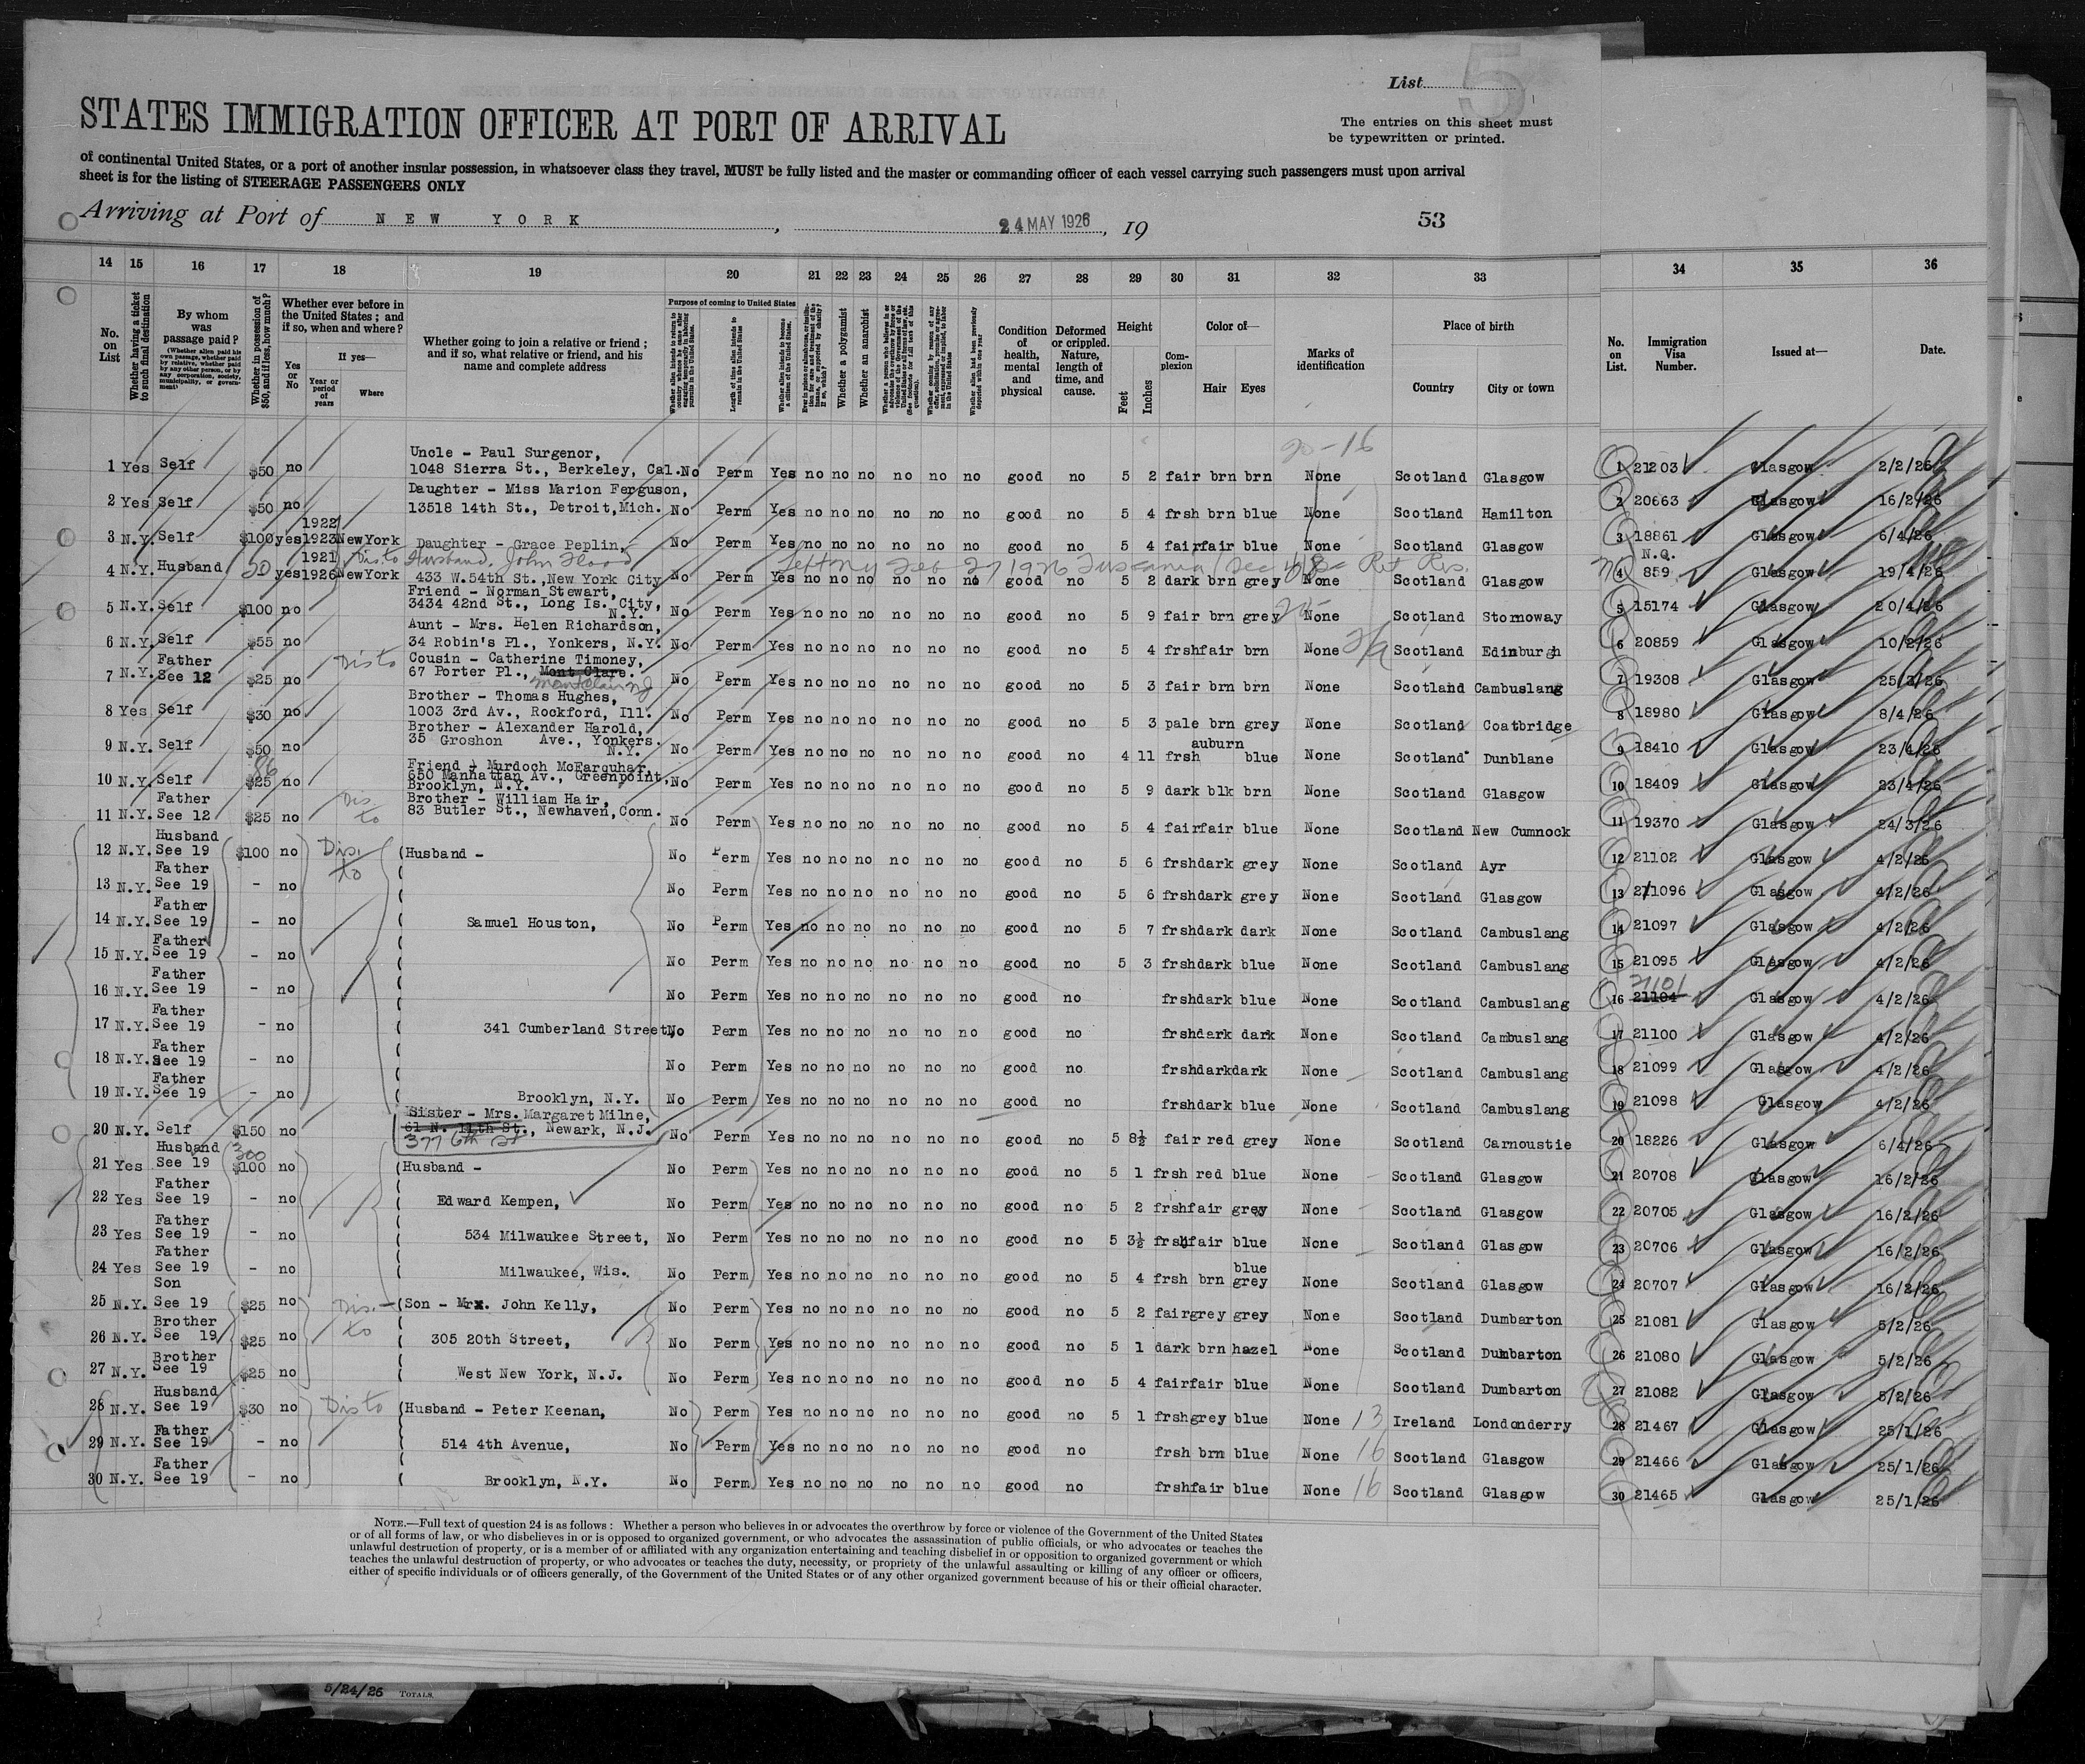 List 5
STATES IMMIGRATION OFFICER AT PORT OF ARRIVAL
The entries on this sheet must
be typewritten or printed.
of continental United States, or a port of another insular possession, in whatsoever class they travel, MUST be fully listed and the master or commanding officer of each vessel carrying such passengers must upon arrival
sheet is for the listing of STEERAGE PASSENGERS ONLY
Arriving at Port of NEW YORK, 24 MAY 1926, 19 53
14 15 16 17 18 19 20 21 22 23 24 25 26 27 28 29 30 31 32 33 34 35 36
No. on List
Whether having a ticket to such final destination
By whom was passage paid?
(Whether alien paid his own passage, whether paid by relative, whether paid by any other person, or by any corporation, society, municipality, or government)
Whether in possession of $50, and if less, how much?
Whether ever before in the United States; and if so, when and where?
Yes or No
If yes—
Year or period of years
Where
Whether going to join a relative or friend; and if so, what relative or friend, and his name and complete address
Purpose of coming to United States
Length of time alien intends to remain in the United States
Whether alien intends to become a citizen of the United States.
Whether a polygamist
Whether an anarchist
Condition of health, mental and physical
Deformed or crippled. Nature, length of time, and cause.
Height
Feet
Inches
Complexion
Color of—
Hair
Eyes
Marks of identification
Place of birth
Country
City or town
No. on List.
Immigration Visa Number.
Issued at—
Date.
20-16
1 Yes Self $50 no Uncle - Paul Surgenor, 1048 Sierra St., Berkeley, Cal. No Perm Yes no no no no no no good no 5 2 fair brn brn None Scotland Glasgow 1 21203 Glasgow 2/2/26
2 Yes Self $50 no Daughter - Miss Marion Ferguson, 13518 14th St., Detroit, Mich. No Perm Yes no no no no no no good no 5 4 frsh brn blue None Scotland Hamilton 2 20663 Glasgow 16/2/26
3 N.Y. Self $100 yes 1922 1923 NewYork Daughter - Grace Peplin, No Perm Yes no no no no no no good no 5 4 fair fair blue None Scotland Glasgow 3 18861 Glasgow 6/4/26
4 N.Y. Husband 50 yes 1921 1926 NewYork Dis to Husband, John Flood 433 W.54th St., New York City No Perm Yes no no no no no no good no 5 2 dark brn grey None Scotland Glasgow 4 N.Q. 859 Glasgow 19/4/26
Left NY Feb 27 1926 Tuscania
5 N.Y. Self $100 no Friend - Norman Stewart, 3434 42nd St., Long Is. City, N.Y. No Perm Yes no no no no no no good no 5 9 fair brn grey None Scotland Stornoway 5 15174 Glasgow 20/4/26
6 N.Y. Self $55 no Aunt - Mrs. Helen Richardson, 34 Robin's Pl., Yonkers, N.Y. No Perm Yes no no no no no no good no 5 4 frsh fair brn None Scotland Edinburgh 6 20859 Glasgow 10/2/26
7 N.Y. Father See 12 $25 no Dis to Cousin - Catherine Timoney, 67 Porter Pl., Mont Clare. Montclair NJ No Perm Yes no no no no no no good no 5 3 fair brn brn None Scotland Cambuslang 7 19308 Glasgow 25/3/26
8 Yes Self $30 no Brother - Thomas Hughes, 1003 3rd Av., Rockford, Ill. No Perm Yes no no no no no no good no 5 3 pale brn grey None Scotland Coatbridge 8 18980 Glasgow 8/4/26
9 N.Y. Self $50 no Brother - Alexander Harold, 35 Groshon Ave., Yonkers. N.Y. No Perm Yes no no no no no no good no 4 11 frsh auburn blue None Scotland Dunblane 9 18410 Glasgow 23/4/26
10 N.Y. Self $25 no Friend - Murdoch McFarquhar, 650 Manhattan Av., Greenpoint, Brooklyn, N.Y. No Perm Yes no no no no no no good no 5 9 dark blk brn None Scotland Glasgow 10 18409 Glasgow 23/4/26
11 N.Y. Father See 12 $25 no Dis to Brother - William Hair, 83 Butler St., Newhaven, Conn. No Perm Yes no no no no no no good no 5 4 fair fair blue None Scotland New Cumnock 11 19370 Glasgow 24/3/26
12 N.Y. Husband See 19 $100 no Dis. to (Husband - No Perm Yes no no no no no no good no 5 6 frsh dark grey None Scotland Ayr 12 21102 Glasgow 4/2/26
13 N.Y. Father See 19 - no No Perm Yes no no no no no no good no 5 6 frsh dark grey None Scotland Glasgow 13 21096 Glasgow 4/2/26
14 N.Y. Father See 19 - no Samuel Houston, No Perm Yes no no no no no no good no 5 7 frsh dark dark None Scotland Cambuslang 14 21097 Glasgow 4/2/26
15 N.Y. Father See 19 - no No Perm Yes no no no no no no good no 5 3 frsh dark blue None Scotland Cambuslang 15 21095 Glasgow 4/2/26
16 N.Y. Father See 19 - no No Perm Yes no no no no no no good no frsh dark blue None Scotland Cambuslang 16 21101 21104 Glasgow 4/2/26
17 N.Y. Father See 19 - no 341 Cumberland Street, No Perm Yes no no no no no no good no frsh dark dark None Scotland Cambuslang 17 21100 Glasgow 4/2/26
18 N.Y. Father See 19 - no No Perm Yes no no no no no no good no frsh dark dark None Scotland Cambuslang 18 21099 Glasgow 4/2/26
19 N.Y. Father See 19 - no Brooklyn, N.Y. No Perm Yes no no no no no no good no frsh dark blue None Scotland Cambuslang 19 21098 Glasgow 4/2/26
20 N.Y. Self $150 no Sister - Mrs. Margaret Milne, 61 N. 11th St., Newark, N.J. 377 6th St No Perm Yes no no no no no no good no 5 8½ fair red grey None Scotland Carnoustie 20 18226 Glasgow 6/4/26
21 Yes Husband See 19 300 $100 no (Husband - No Perm Yes no no no no no no good no 5 1 frsh red blue None Scotland Glasgow 21 20708 Glasgow 16/2/26
22 Yes Father See 19 - no Edward Kempen, No Perm Yes no no no no no no good no 5 2 frsh fair grey None Scotland Glasgow 22 20705 Glasgow 16/2/26
23 Yes Father See 19 - no 534 Milwaukee Street, No Perm Yes no no no no no no good no 5 3½ frsh fair blue None Scotland Glasgow 23 20706 Glasgow 16/2/26
24 Yes Father See 19 - no Milwaukee, Wis. No Perm Yes no no no no no no good no 5 4 frsh brn blue grey None Scotland Glasgow 24 20707 Glasgow 16/2/26
25 N.Y. Son See 19 $25 no Dis. to (Son - Mr. John Kelly, No Perm Yes no no no no no no good no 5 2 fair grey grey None Scotland Dumbarton 25 21081 Glasgow 5/2/26
26 N.Y. Brother See 19 $25 no 305 20th Street, No Perm Yes no no no no no no good no 5 1 dark brn hazel None Scotland Dumbarton 26 21080 Glasgow 5/2/26
27 N.Y. Brother See 19 $25 no West New York, N.J. No Perm Yes no no no no no no good no 5 4 fair fair blue None Scotland Dumbarton 27 21082 Glasgow 5/2/26
28 N.Y. Husband See 19 $30 no Dis to (Husband - Peter Keenan, No Perm Yes no no no no no no good no 5 1 frsh grey blue None 13 Ireland Londonderry 28 21467 Glasgow 25/1/26
29 N.Y. Father See 19 - no 514 4th Avenue, No Perm Yes no no no no no no good no frsh brn blue None 16 Scotland Glasgow 29 21466 Glasgow 25/1/26
30 N.Y. Father See 19 - no Brooklyn, N.Y. No Perm Yes no no no no no no good no frsh fair blue None 16 Scotland Glasgow 30 21465 Glasgow 25/1/26
NOTE.—Full text of question 24 is as follows: Whether a person who believes in or advocates the overthrow by force or violence of the Government of the United States
or of all forms of law, or who disbelieves in or is opposed to organized government, or who advocates the assassination of public officials, or who advocates or teaches the
unlawful destruction of property, or is a member of or affiliated with any organization entertaining and teaching disbelief in or opposition to organized government or which
teaches the unlawful destruction of property, or who advocates or teaches the duty, necessity, or propriety of the unlawful assaulting or killing of any officer or officers,
either of specific individuals or of officers generally, of the Government of the United States or of any other organized government because of his or their official character.
5/24/26 TOTALS.